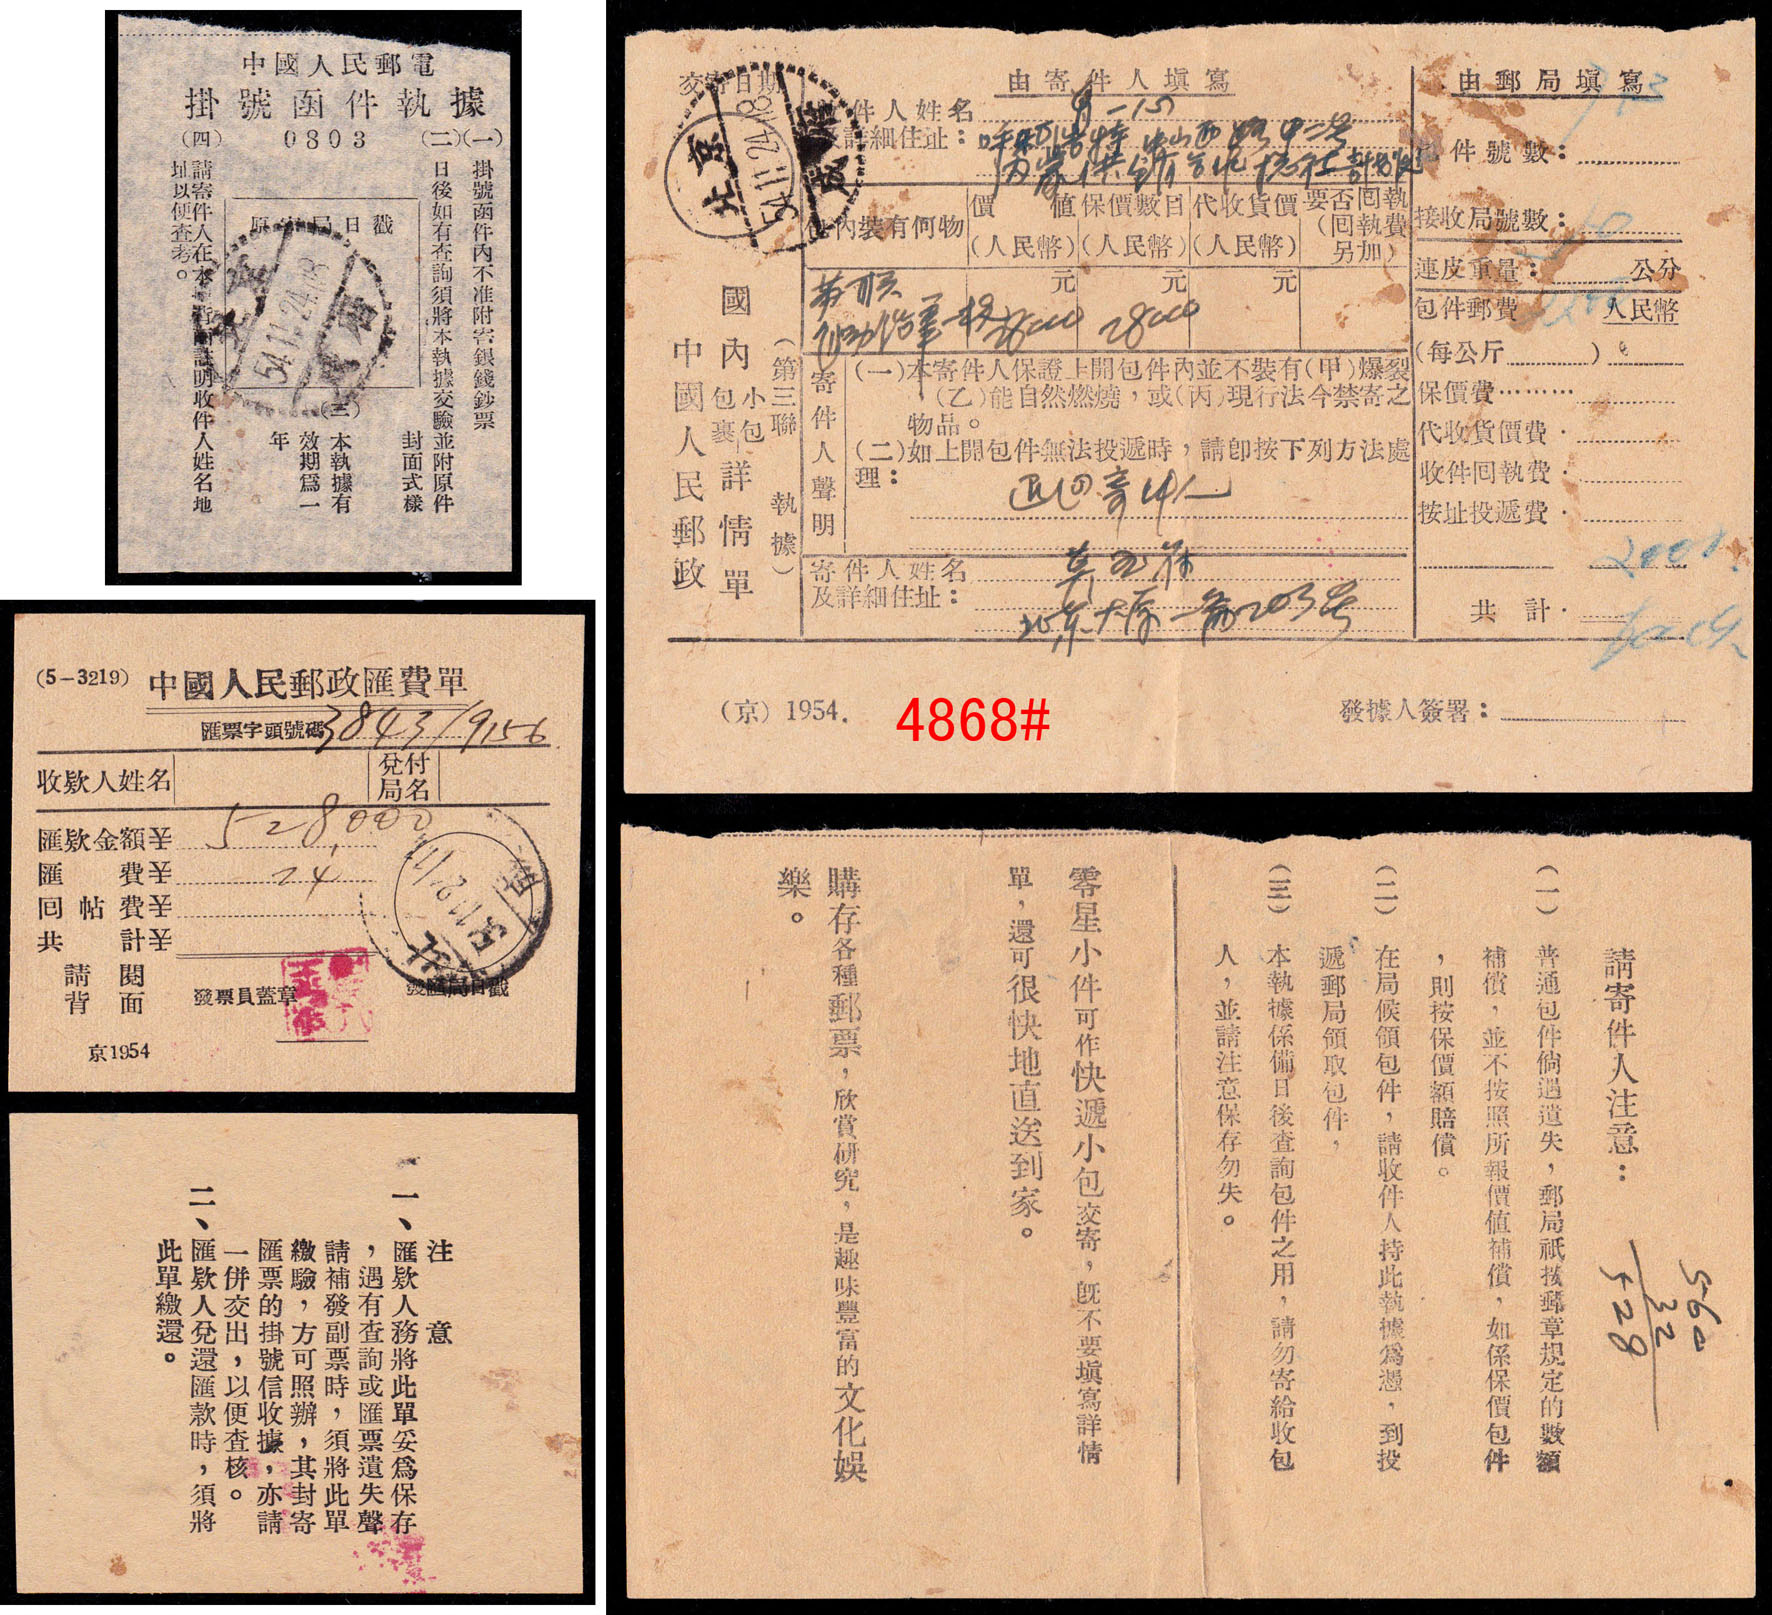 中國人民郵電
掛號函件執據
0803
(一)掛號函件內不准附寄銀錢鈔票
(二)日後如有查詢須將本執據交驗並附原件
封面式樣
(三)本執據有
效期爲一
年
(四)請寄件人在本背面註明收件人姓名地
址以便查考。
原寄局日戳
54.11.24.18
(5-3219) 中國人民郵政匯費單
匯票字頭號碼 3843/9156
收款人姓名
兌付
局名
匯款金額 528,000
匯費 24
回帖費
共計
請閱
背面
發票員蓋章
發匯局日戳
京1954
注意
一、匯款人務將此單妥爲保存
，遇有查詢或匯票遺失聲
請補發副票時，須將此單
繳驗，方可照辦，其封寄
匯票的掛號信收據，亦請
一併交出，以便查核。
二、匯款人兌還匯款時，須將
此單繳還。
交寄日期
北京
54.11.24.18
由寄件人塡寫
由郵局塡寫
件人姓名
及詳細住址：
包內裝有何物
價値
(人民幣)
保價數目
(人民幣)
代收貨價
(人民幣)
要否回執
(回執費
另加)
元
元
元
28000
28000
中國人民郵政
國內小包包裹詳情單
(第三聯 執據)
寄件人聲明
(一)本寄件人保證上開包件內並不裝有(甲)爆裂
(乙)能自然燃燒，或(丙)現行法令禁寄之
物品。
(二)如上開包件無法投遞時，請卽按下列方法處
理：
退回寄件人
寄件人姓名
及詳細住址：
包件號數：
接收局號數：
連皮重量： 公分
包件郵費 人民幣
(每公斤)
保價費
代收貨價費
收件回執費
按址投遞費
共計
(京) 1954.
4868#
發據人簽署：
請寄件人注意：
(一)普通包件倘遇遺失，郵局祇按郵章規定的數額
補償，並不按照所報價値補償，如係保價包件
，則按保價額賠償。
(二)在局候領包件，請收件人持此執據爲憑，到投
遞郵局領取包件，
(三)本執據係備日後查詢包件之用，請勿寄給收包
人，並請注意保存勿失。
零星小件可作快遞小包交寄，旣不要塡寫詳情
單，還可很快地直送到家。
購存各種郵票，欣賞研究，是趣味豐富的文化娛
樂。
560
32
528